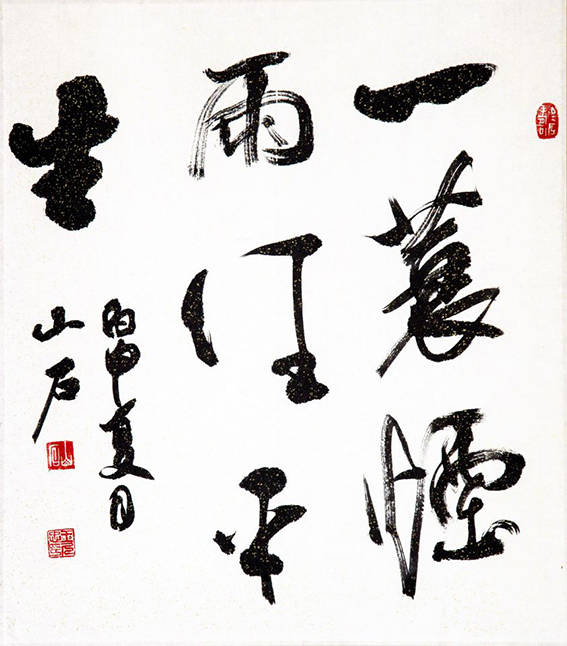 一蓑煙
雨任平
生
丙申夏月
山石
山石